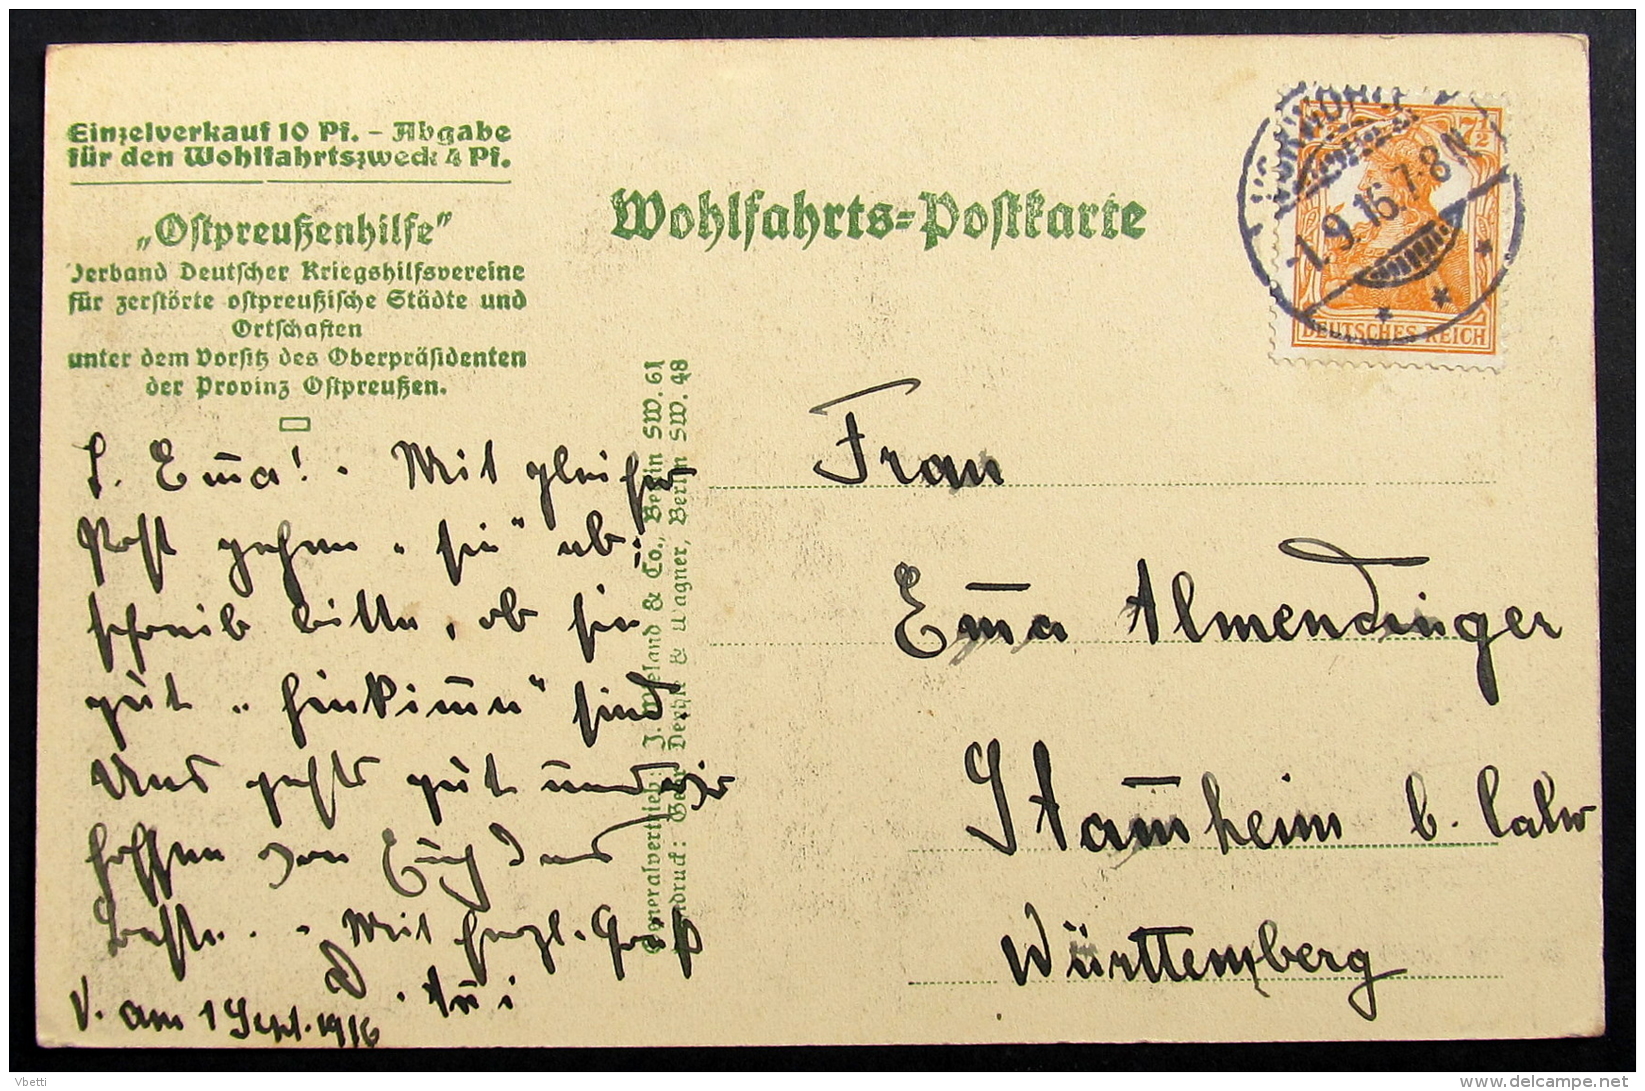 Einzelverkauf 10 Pf. – Abgabe
für den Wohlfahrtszweck 4 Pf.
„Ostpreußenhilfe"
Verband Deutscher Kriegshilfsvereine
für zerstörte ostpreußische Städte und
Ortschaften
unter dem Vorsitz des Oberpräsidenten
der Provinz Ostpreußen.
Wohlfahrts-Postkarte
7½ 7½
DEUTSCHES REICH
1.9.16. 7-8 N
L. Em̅a! - Mit gleicher
Post gehen „sie" ab;
schreib bitte, ob sie
gut „ " sind.
Uns gehts gut und wir
hoffen von Euch das
Beste. - Mit herzl. Gruß
D.
V. am 1 Sept. 1916
Generalvertrieb: J. Wieland & Co., Berlin SW. 61
& Wagner, Berlin SW. 48
Frau
Em̅a Almendinger
Stam̅heim b. Calw
Württemberg
Vbetti
www.delcampe.net